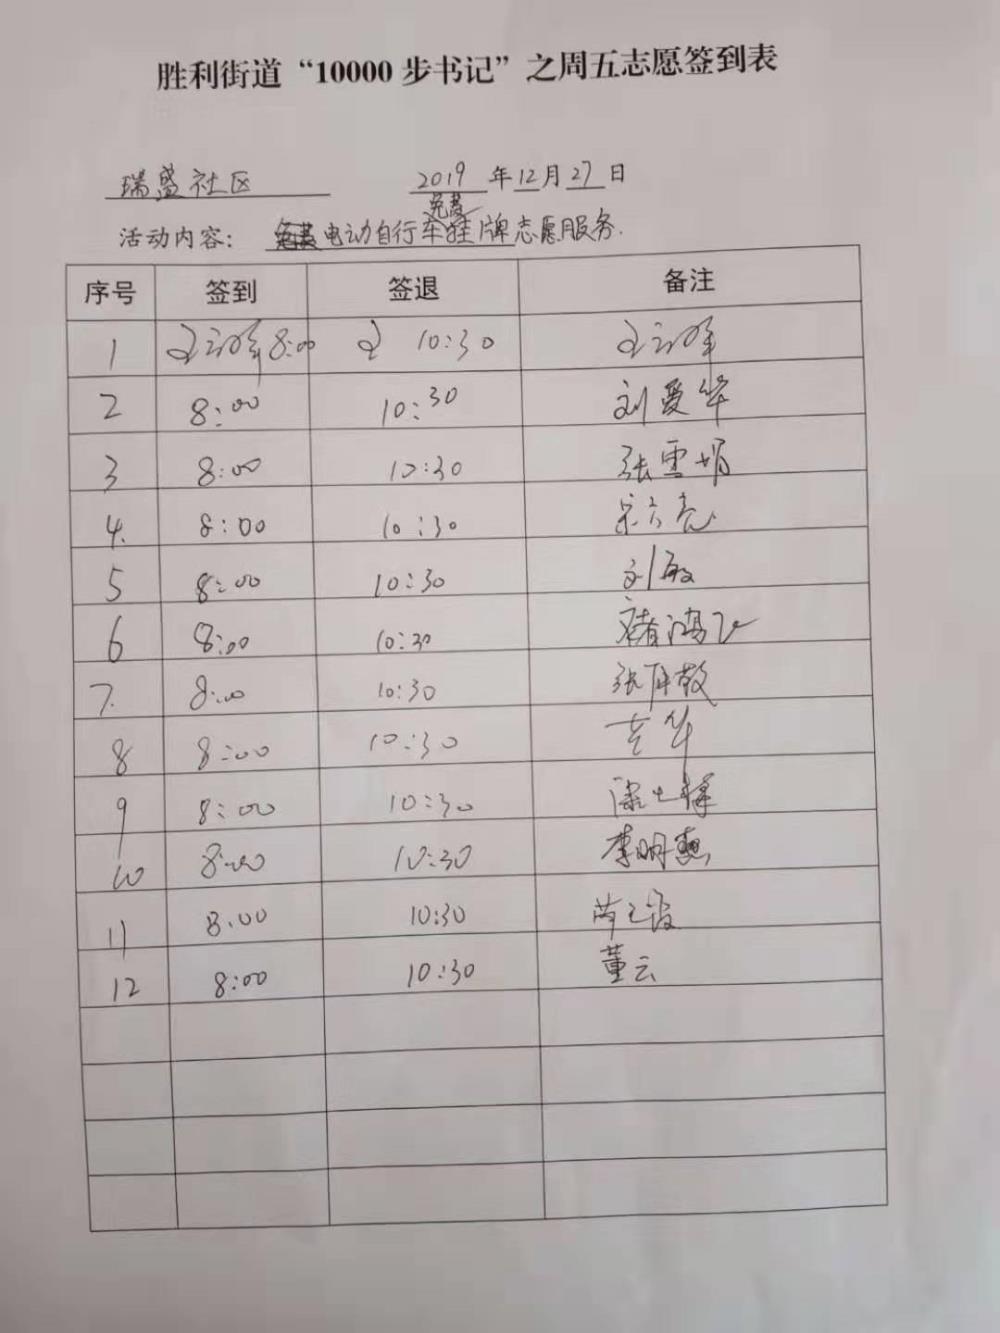 胜利街道“10000 步书记”之周五志愿签到表
瑞盛社区 2019 年 12 月 27 日
免费
活动内容: 电动自行车挂牌志愿服务.
序号 签到 签退 备注
1 8:00 10:30
2 8:00 10:30 刘爱华
3 8:00 10:30 张雪娟
4. 8:00 10:30
5 8:00 10:30 刘敏
6 8:00 10:30 褚鸿飞
7. 8:00 10:30 张
8 8:00 10:30 华
9 8:00 10:30
10 8:00 10:30 李明慧
11 8.00 10:30
12 8:00 10:30 董云